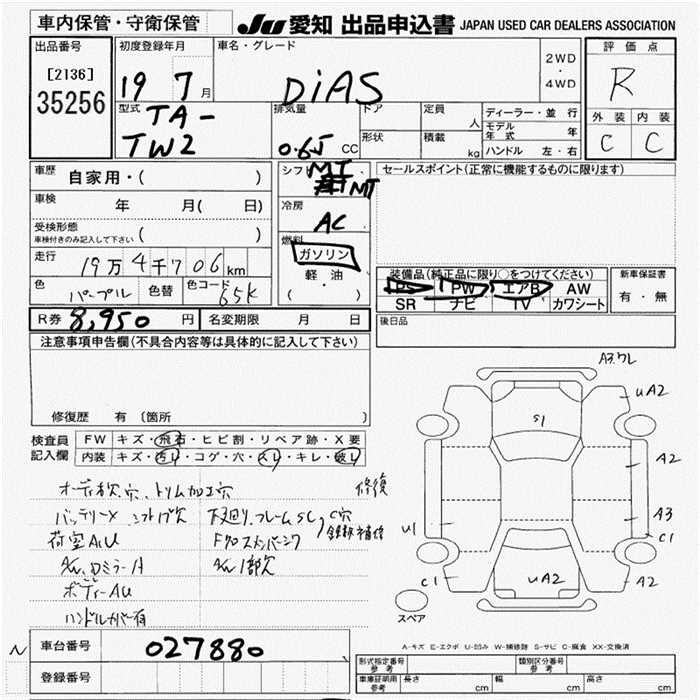 車内保管・守衛保管 JU 愛知 出品申込書 JAPAN USED CAR DEALERS ASSOCIATION
出品番号 初度登録年月 車名・グレード 評価点
[2136] 2WD
35256 19 7月 DiAS ・ R
4WD
型式 排気量 ドア 定員 ディーラー・並行 外装 内装
TA- 人 モデル年式 年
TW2 0.65 CC 形状 積載 kg ハンドル 左・右 C C
車歴 自家用・( ) シフト MT MT セールスポイント(正常に機能するものに限ります)
車検 年 月( 日) 冷房
受検形態 AC
車検付きのみ記入して下さい ( ) 燃料
走行 19万4千706km ガソリン 装備品(純正品に限り○をつけてください) 新車保証書
色 パープル 色替 色コード 65K 軽油 PS PW エアB AW 有・無
( ・ ) SR ナビ TV カワシート
R券 8,950円 名変期限 月 日 後日品
注意事項申告欄(不具合内容等は具体的に記入して下さい)
A3ワレ
uA2
S1
修復歴 有 〔箇所 〕
検査員 FW キズ・飛石・ヒビ割・リペア跡・X要
記入欄 内装 キズ・汚レ・コゲ・穴・スレ・キレ・破レ
A2
オーディオ欠、穴、トリム加工穴 修復
バッテリーX シフトノブ欠 下廻り、フレームSC、C穴
A3
u1 C1
荷室AU
ボディーAU
C1 uA2 A2
ハンドルカバー有
スペア
N 車台番号 027880
A-キズ E-エクボ U-凹み W-補修跡 S-サビ C-腐食 XX-交換済
登録番号 形式指定番号 参考 類別区分番号 参考
車庫証明用 参考 長さ cm 幅 cm 高さ cm